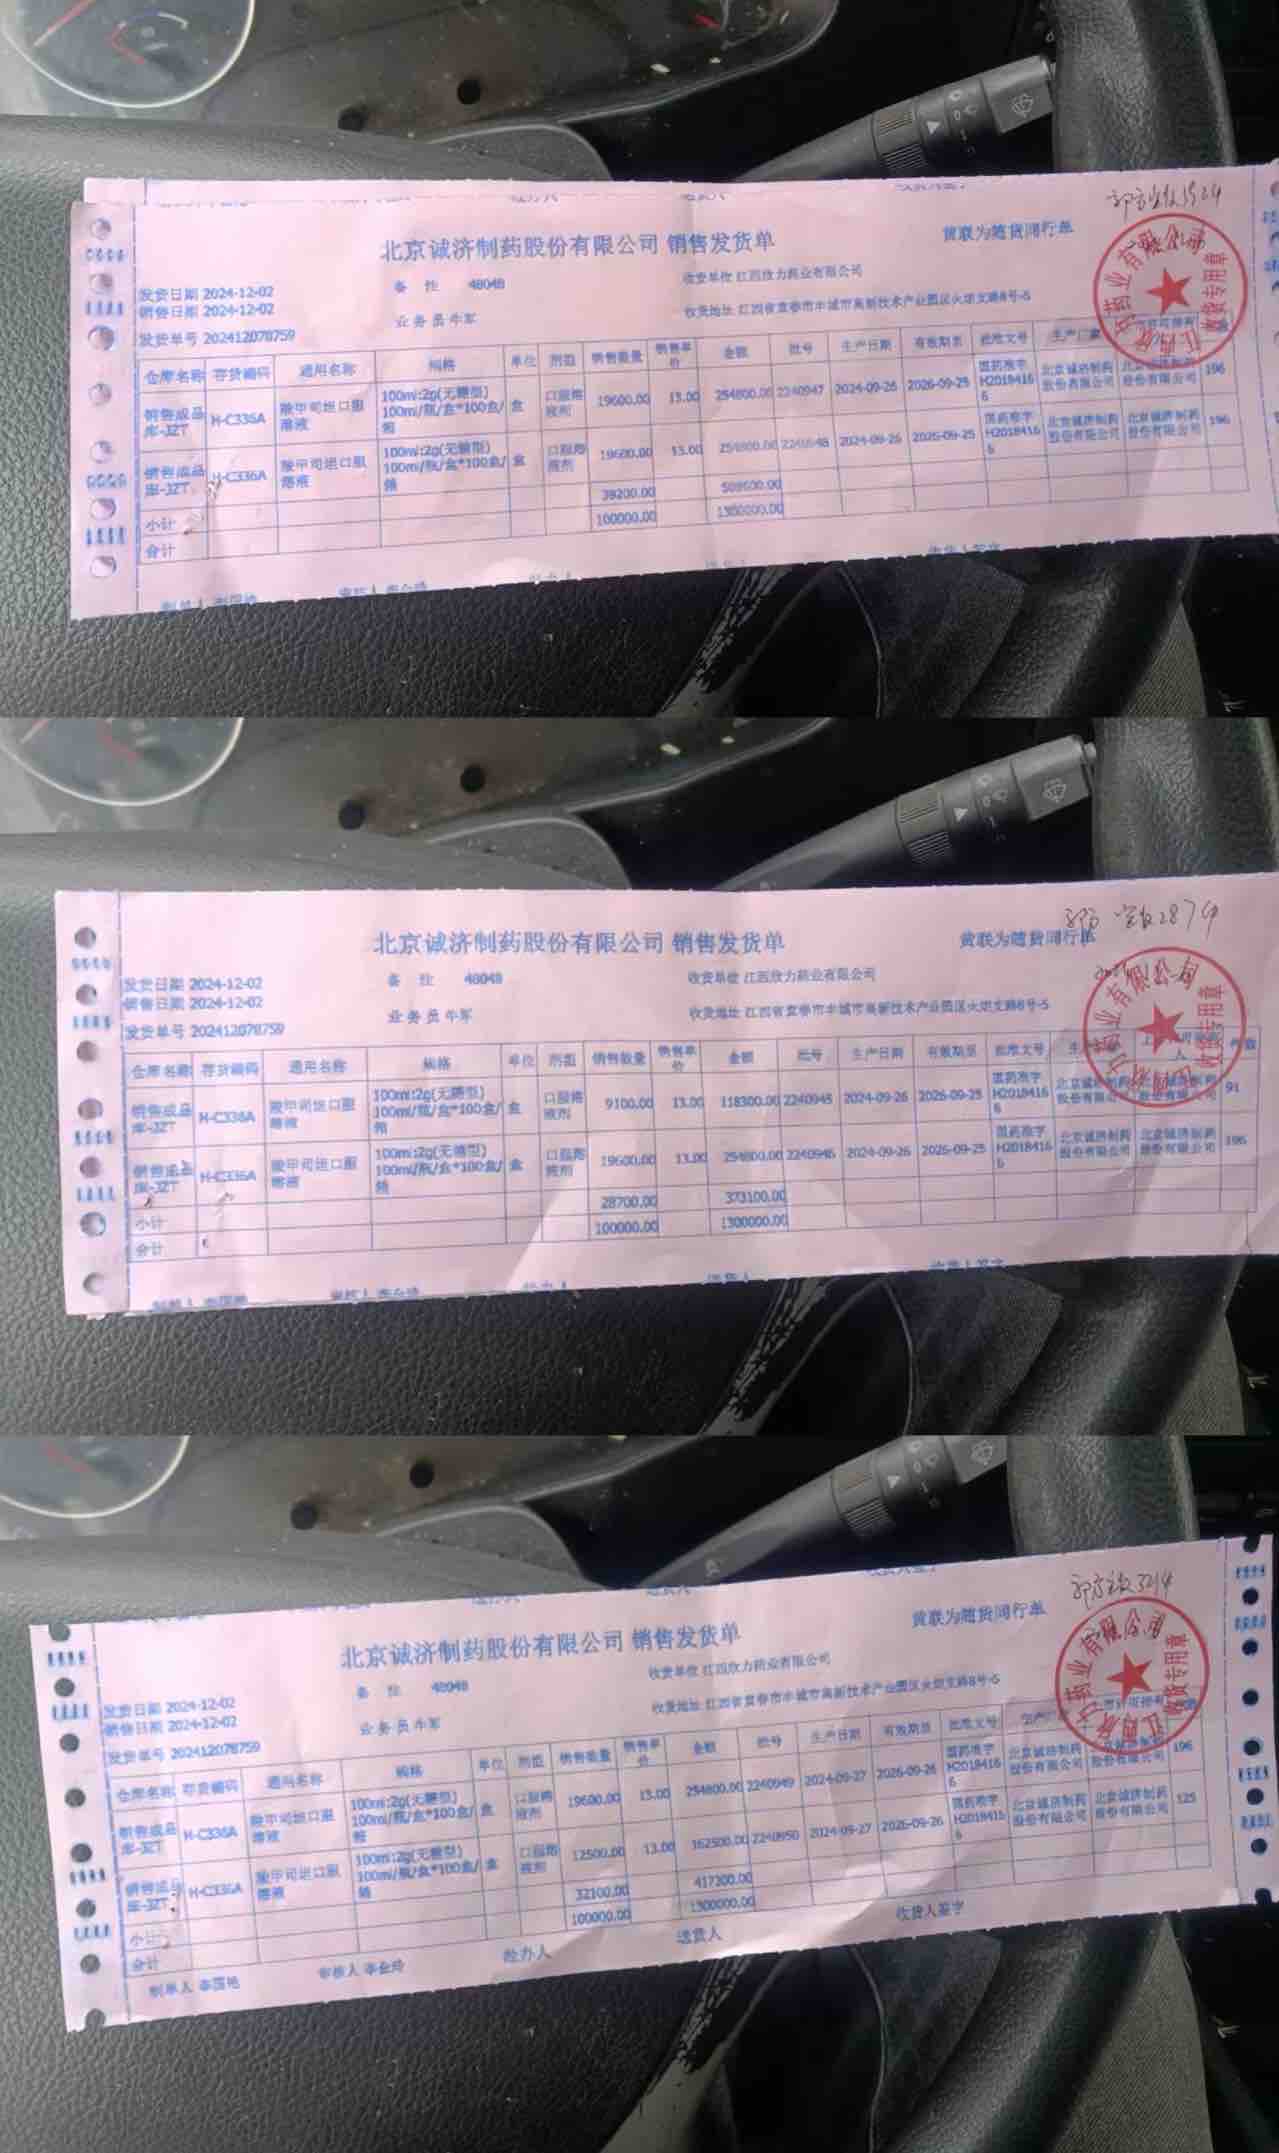 北京诚济制药股份有限公司 销售发货单
黄联为随货同行单
发货日期 2024-12-02
销售日期 2024-12-02
发货单号 202412078759
备 注 48048
业务员 牛军
收货单位 江西欣力药业有限公司
收货地址 江西省宜春市丰城市高新技术产业园区火炬支路8号-5
仓库名称 存货编码 通用名称 规格 单位 剂型 销售数量 销售单价 金额 批号 生产日期 有效期至 批准文号
销售成品库-JZT H-C336A 羧甲司坦口服溶液 100ml:2g(无糖型) 100ml/瓶/盒*100盒/箱 盒 口服溶液剂 19600.00 13.00 254800.00 2240947 2024-09-26 2026-09-25 国药准字H20184166 北京诚济制药股份有限公司 北京诚济制药股份有限公司 196
销售成品库-JZT H-C336A 羧甲司坦口服溶液 100ml:2g(无糖型) 100ml/瓶/盒*100盒/箱 盒 口服溶液剂 19600.00 13.00 254800.00 2240948 2024-09-26 2026-09-25 国药准字H20184166 北京诚济制药股份有限公司 北京诚济制药股份有限公司 196
小计 39200.00 509600.00
合计 100000.00 1300000.00
北京诚济制药股份有限公司 销售发货单
黄联为随货同行单
发货日期 2024-12-02
销售日期 2024-12-02
发货单号 202412078759
备 注 48048
业务员 牛军
收货单位 江西欣力药业有限公司
收货地址 江西省宜春市丰城市高新技术产业园区火炬支路8号-5
仓库名称 存货编码 通用名称 规格 单位 剂型 销售数量 销售单价 金额 批号 生产日期 有效期至 批准文号 件数
销售成品库-JZT H-C336A 羧甲司坦口服溶液 100ml:2g(无糖型) 100ml/瓶/盒*100盒/箱 盒 口服溶液剂 9100.00 13.00 118300.00 2240945 2024-09-26 2026-09-25 国药准字H20184166 北京诚济制药股份有限公司 91
销售成品库-JZT H-C336A 羧甲司坦口服溶液 100ml:2g(无糖型) 100ml/瓶/盒*100盒/箱 盒 口服溶液剂 19600.00 13.00 254800.00 2240946 2024-09-26 2026-09-25 国药准字H20184166 北京诚济制药股份有限公司 北京诚济制药股份有限公司 196
小计 28700.00 373100.00
合计 100000.00 1300000.00
北京诚济制药股份有限公司 销售发货单
黄联为随货同行单
发货日期 2024-12-02
销售日期 2024-12-02
发货单号 202412078759
备 注 48048
业务员 牛军
收货单位 江西欣力药业有限公司
收货地址 江西省宜春市丰城市高新技术产业园区火炬支路8号-5
仓库名称 存货编码 通用名称 规格 单位 剂型 销售数量 销售单价 金额 批号 生产日期 有效期至 批准文号
销售成品库-JZT H-C336A 羧甲司坦口服溶液 100ml:2g(无糖型) 100ml/瓶/盒*100盒/箱 盒 口服溶液剂 19600.00 13.00 254800.00 2240949 2024-09-27 2026-09-26 国药准字H20184166 北京诚济制药股份有限公司 北京诚济制药股份有限公司 196
销售成品库-JZT H-C336A 羧甲司坦口服溶液 100ml:2g(无糖型) 100ml/瓶/盒*100盒/箱 盒 口服溶液剂 12500.00 13.00 162500.00 2240950 2024-09-27 2026-09-26 国药准字H20184166 北京诚济制药股份有限公司 北京诚济制药股份有限公司 125
小计 32100.00 417300.00
合计 100000.00 1300000.00
制单人 审核人 经办人 送货人 收货人签字